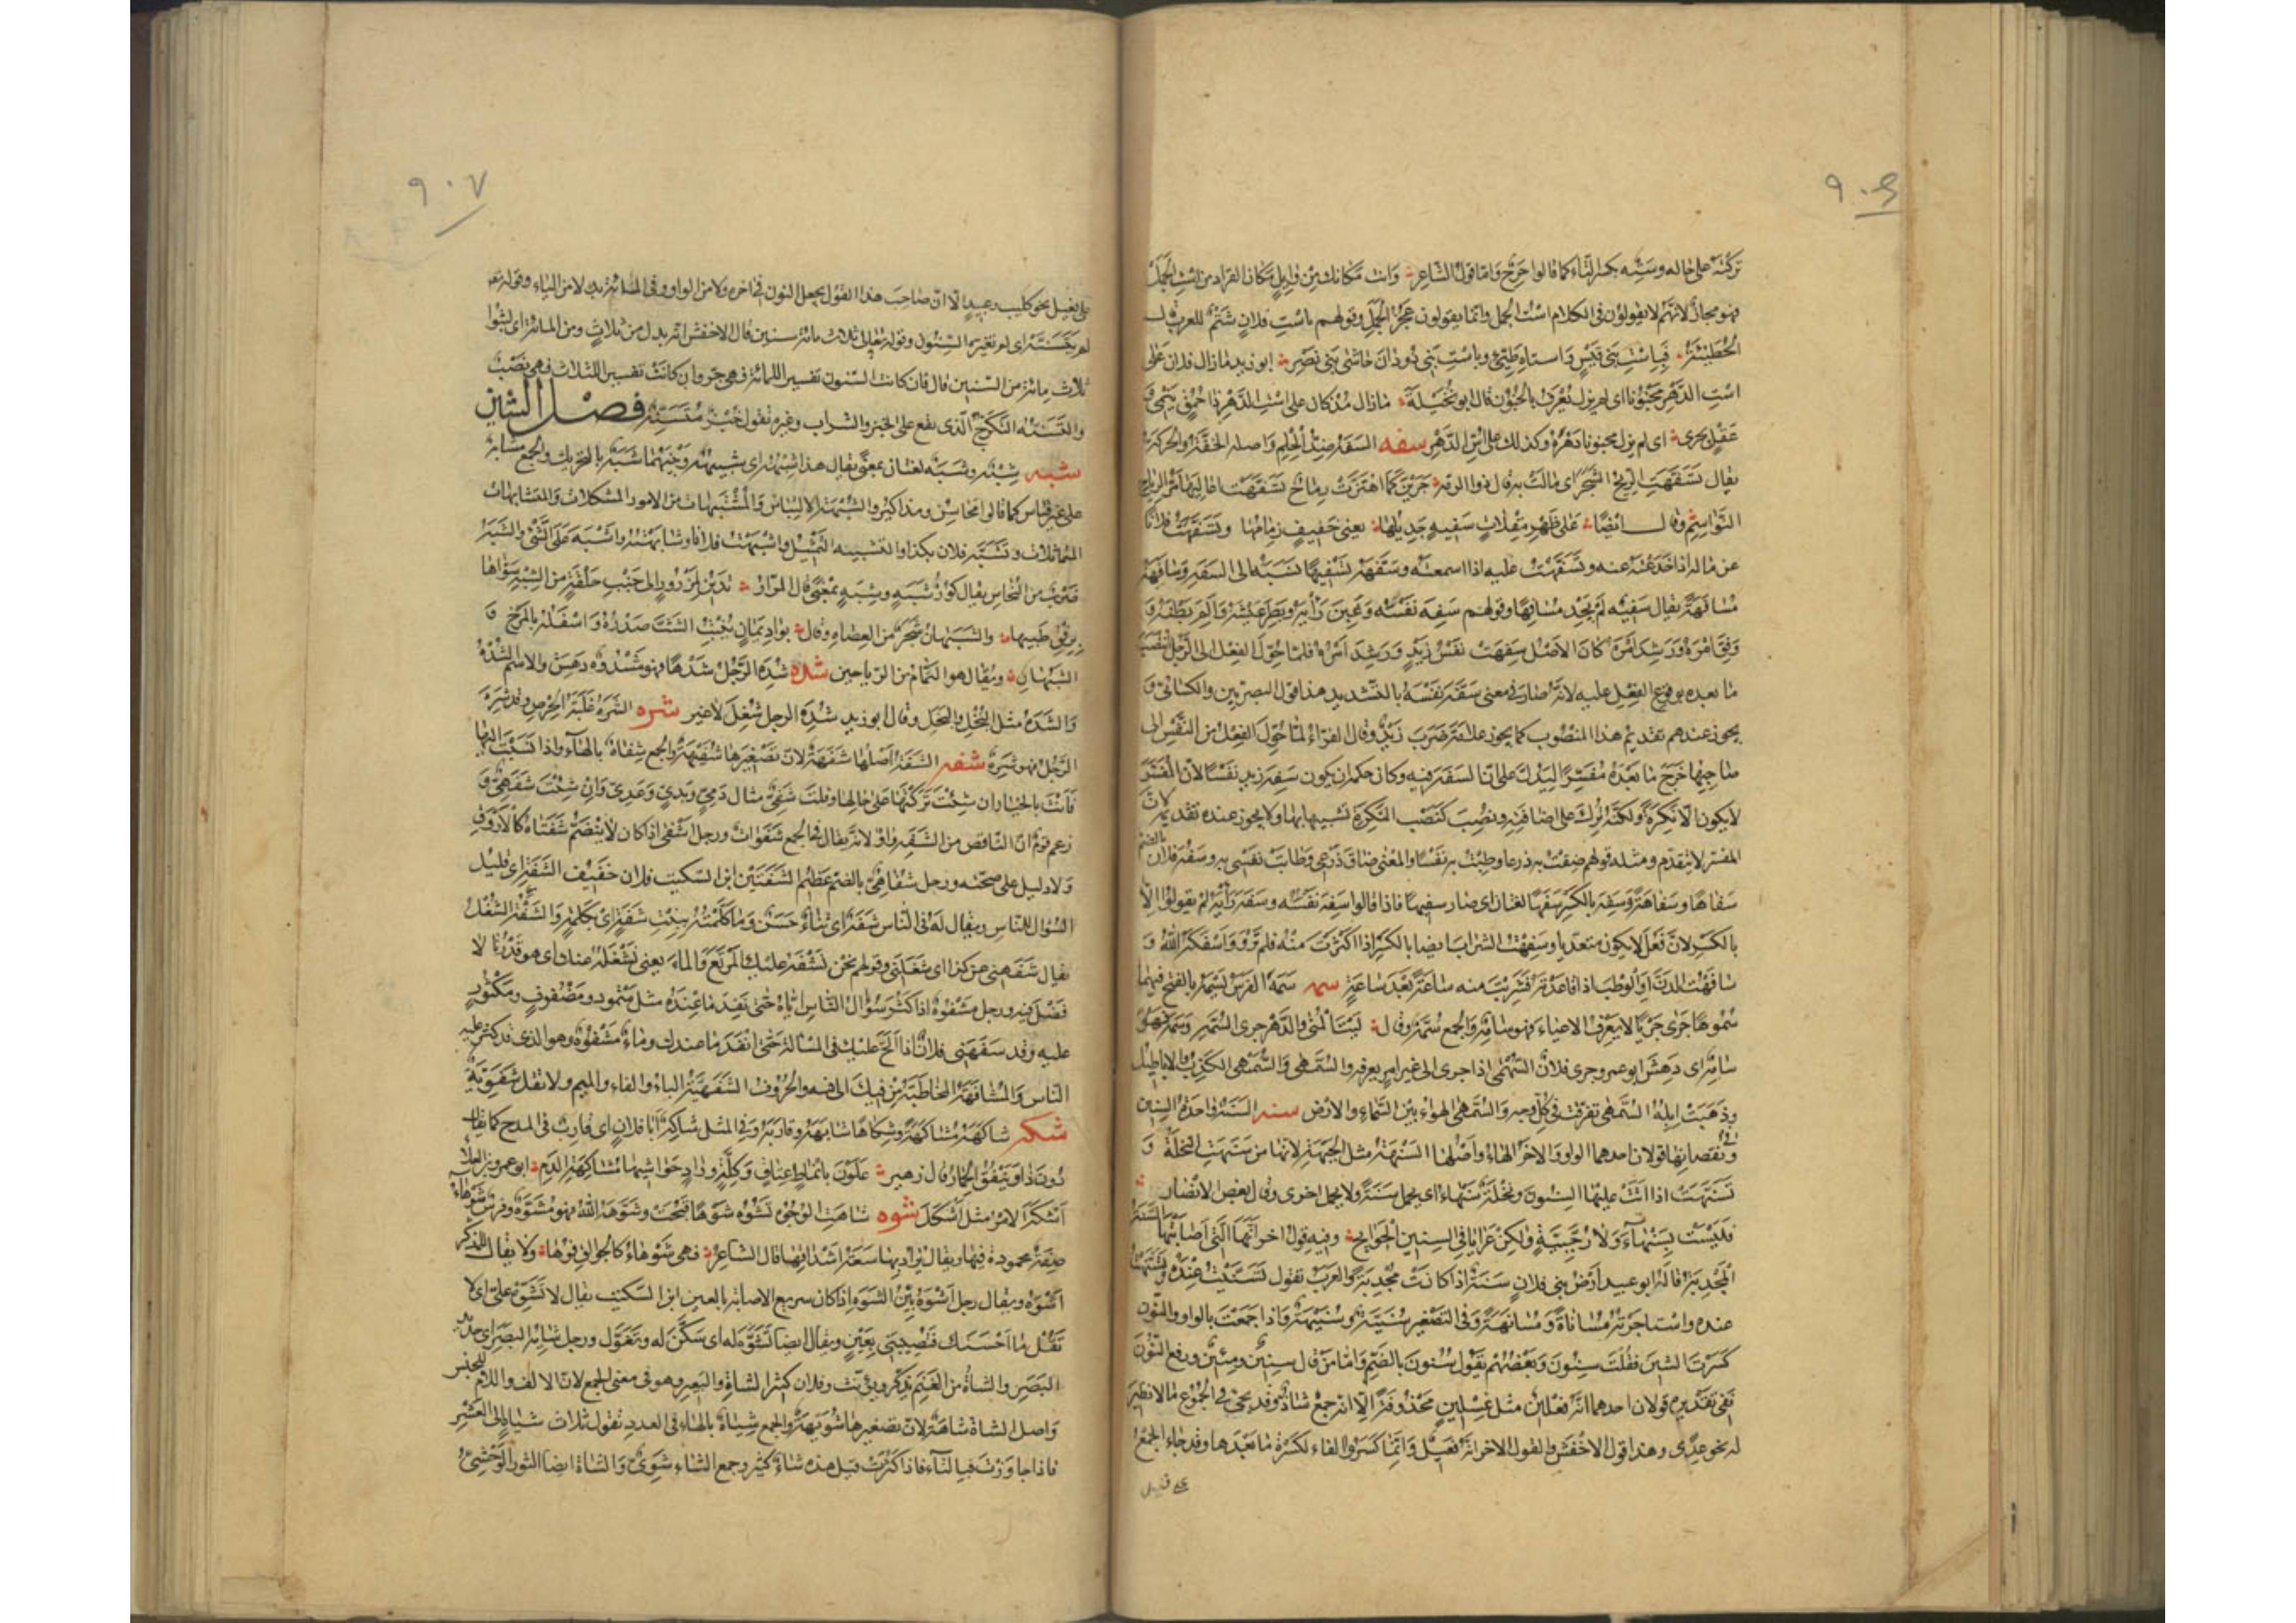 ٩٠٦
تركته على حاله وستِه بكسر التاء كما قالوا حرح واما قول الشاعر وانت مكانك من وايل مكان القراد من است الجمل
فهو مجاز لانهم لا يقولون في الكلام است الجمل وانما يقولون عجز الجمل وقولهم باست فلان شتم للعرب قال
الحطيئة فباست بني قيس واستاه طيئ وباست بني دودان حاشى بني نصر ابو زيد ما زال فلان على
است الدهر مجنونا اى لم يزل يعرف بالجنون قال ابو نخيلة ما زال مذ كان على است الدهر ذا حمق ينمي و
عقل يحرى اى لم يزل مجنونا دهره وكذلك على اس الدهر سفه السفه ضد الحلم واصله الخفة والحركة
يقال تسفهت الريح الشجر اى مالت به قال ذو الرمة جرين كما اهتزت رماح تسفهت اعاليها مر الرياح
النواسم وقال ايضا على ظهر مقلات سفيه جديلها يعني خفيف زمامها وتسفهت فلانا
عن ماله اذا خدعته عنه وتسفهت عليه اذا اسمعته وسفهه تسفيها نسبه الى السفه وسافهه
مسافهة يقال سفيه لم يجد مسافها وقولهم سفه نفسه وغبن رأيه وبطر عيشه والم بطنه و
وفق امره ورشد امره كان الاصل سفهت نفس زيد ورشد امره فلما حول الفعل الى الرجل انتصب
ما بعده بوقوع الفعل عليه لانه صار في معنى سفه نفسه بالتشديد هذا قول البصريين والكسائي و
يجوز عندهم تقديم هذا المنصوب كما يجوز غلامه ضرب زيد وقال الفراء لما حول الفعل من النفس الى
صاحبها خرج ما بعده مفسرا ليدل على ان السفه فيه وكان حكمه ان يكون سفه زيد نفسا لان المفسر
لا يكون الا نكرة ولكنه ترك على اضافته ونصب كنصب النكرة تشبيها بها ولا يجوز عنده تقديمه لان
المفسر لا يتقدم ومثله قولهم ضقت به ذرعا وطبت به نفسا والمعنى ضاق ذرعي وطابت نفسي به وسفه فلان بالضم
سفاها وسفاهة وسفه بالكسر سفها لغتان اى صار سفيها فاذا قالوا سفه نفسه وسفه رأيه لم يقولوا الا
بالكسر لان فعل لا يكون متعديا وسفهت الشراب ايضا بالكسر اذا اكثرت منه فلم ترو واسفهكه الله و
سافهت الدن او الوطب اذا قاعدته فشربت منه ساعة بعد ساعة سمه سمه الفرس يسمه بالفتح فيهما
سموها جرى جريا لا يعرف الاعياء فهو سامه والجمع سمه وقال ليت المنى والدهر جرى السمه وسمه فهو
سامه اى دهش ابو عمرو جرى فلان السمهى اذا جرى الى غير امر يعرفه والسمهى والسمهى الكذب والاباطيل
وذهبت ابله السمهى تفرقت في كل وجه والسمهى الهواء بين السماء والارض سنه السنة واحدة السنين
وفي نقصانها قولان احدهما الواو والاخر الهاء واصلها السنهة مثل الجبهة لانها من سنهت النخلة و
تسنهت اذا اتت عليها السنون ونخلة سنهاء اى تحمل سنة ولا تحمل اخرى وقال بعض الانصار
فليست بسنهاء ولا رجبية ولكن عرايا في السنين الجوايح وفيه قول اخر انها التي اصابتها السنة
المجدبة قاله ابو عبيد ارض بني فلان سنة اذا كانت مجدبة والعرب تقول تسنيت عنده وتسنهت
عنده واستاجرته مساناة ومسانهة وفي التصغير سنية وسنيهة واذا جمعت بالواو والنون
كسرت السين فقلت سنون وبعضهم يقول سنون بالضم واما من قال سنين ومئين ورفع النون
ففي تقديره قولان احدهما انه فعلين مثل غسلين محذوفة الا انه جمع شاذ وقد يجئ في الجموع ما لا نظير
له نحو عدى وهذا قول الاخفش والقول الاخر انه فعيل وانما كسروا الفاء لكسرة ما بعدها وقد جاء الجمع
على فعيل
٩٠٧
على فعيل نحو كليب وعبيد الا ان صاحب هذا القول يجعل النون في اخره بدلا من الواو وفي المائة بدلا من الياء وقوله تعالى
لم يتسنه اى لم تغيره السنون وقوله تعالى ثلاث مائة سنين قال الاخفش انه بدل من ثلاث ومن المائة اى لبثوا
ثلاث مائة من السنين قال فان كانت السنون تفسيرا للمائة فهي جر وان كانت تفسيرا للثلاث فهي نصب
والتسنه التكرج الذى يقع على الخبز والشراب وغيره تقول خبز متسنه فصل الشين
شبه شبه وشبه لغتان بمعنى يقال هذا شبهه اى شبيهه وبينهما شبه بالتحريك والجمع مشابه
على غير قياس كما قالوا محاسن ومذاكير والشبهة الالتباس والمشتبهات من الامور المشكلات والمتشابهات
المتماثلات وتشبه فلان بكذا والتشبيه التمثيل واشبهت فلانا وشابهته واشتبه على الشئ والشبه
ضرب من النحاس يقال كوز شبه وشبه بمعنى قال المرار تدين لمزرور الى جنب حلقة من الشبه سواها
برفق طبيبها والشبهان شجر من العضاه وقال بواد يمان ينبت الشث صدره واسفله بالمرخ و
الشبهان ويقال هو الثمام من الرياحين شده شده الرجل شدها فهو مشدوه دهش والاسم الشده
والشده مثل البخل والبخل وقال ابو زيد شده الرجل شغل لا غير شره الشره غلبة الحرص وقد شره
الرجل فهو شره شفه الشفة اصلها شفهة لان تصغيرها شفيهة والجمع شفاه بالهاء واذا نسبت اليها
فانت بالخيار ان شئت تركتها على حالها وقلت شفى مثال دمى ويدى وعدى وان شئت شفهى و
زعم قوم ان الناقص من الشفة واو لانه يقال في الجمع شفوات ورجل اشفى اذا كان لا ينضم شفتاه كالاروق
ولا دليل على صحته ورجل شفاهى بالضم عظيم الشفتين ابن السكيت فلان خفيف الشفة اى قليل
السؤال للناس ويقال له في الناس شفة اى ثناء حسن وما كلمته ببنت شفة اى بكلمة والشفه الشغل
يقال شفهني عن كذا اى شغلني وقولهم نحن نشفه عليك المرتع والماء يعني نشغله عنك اى هو قدرنا لا
فضل فيه ورجل مشفوه اذا كثر سؤال الناس اياه حتى نفد ما عنده مثل مثمود ومضفوف ومكثور
عليه وقد شفهني فلان اذا الح عليك في المسالة حتى انفد ما عندك وماء مشفوه وهو الذى قد كثر عليه
الناس والمشافهة المخاطبة من فيك الى فيه والحروف الشفهية الباء والفاء والميم ولا تقل شفوية
شكه شاكهه مشاكهة وشكاها شابهه وقاربه وفي المثل شاكه ابا فلان اى قارب في المدح كما يقال
دون ذا وينفق الحمار قال زهير علون بانماط عتاق وكلة وراد حواشيها مشاكهة الدم ابو عمرو بن العلاء
اشكه الامر مثل اشكل شوه شاهت الوجوه تشوه شوها قبحت وشوهه الله فهو مشوه وفرس شوهاء
صفة محمودة فيها ويقال يراد بها سعة اشداقها قال الشاعر فهي شوهاء كالجوالق فوها ولا يقال للذكر
اشوه ويقال رجل اشوه بين الشوه اذا كان سريع الاصابة بالعين ابن السكيت يقال لا تشوه على اى لا
تقل ما احسنك فتصيبني بعين ويقال ايضا تشوه له اى تنكر له وتغول ورجل شائه البصر اى حديد
البصر والشاة من الغنم تذكر وتؤنث وفلان كثير الشاة والبعير وهو في معنى الجمع لان الالف واللام للجنس
واصل الشاة شاهة لان تصغيرها شويهة والجمع شياه بالهاء في العدد تقول ثلاث شياه الى العشر
فاذا جاوزت فبالتاء فاذا كثرت قيل هذه شاء كثيرة وجمع الشاء شوى والشاة ايضا الثور الوحشى